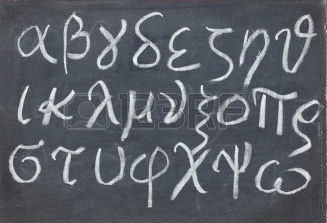 αβγδεζηϑ
ικλμνξοπς
στυφχψω